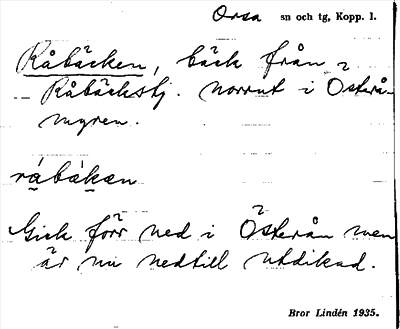 Orsa sn och tg, Kopp. l.
Råbäcken, bäck från
Råbäckstj. norrut i Österå-
myren.
råbäkan
Gick förr ned i Österån men
är nu nedtill utdikad.
Bror Lindén 1935.